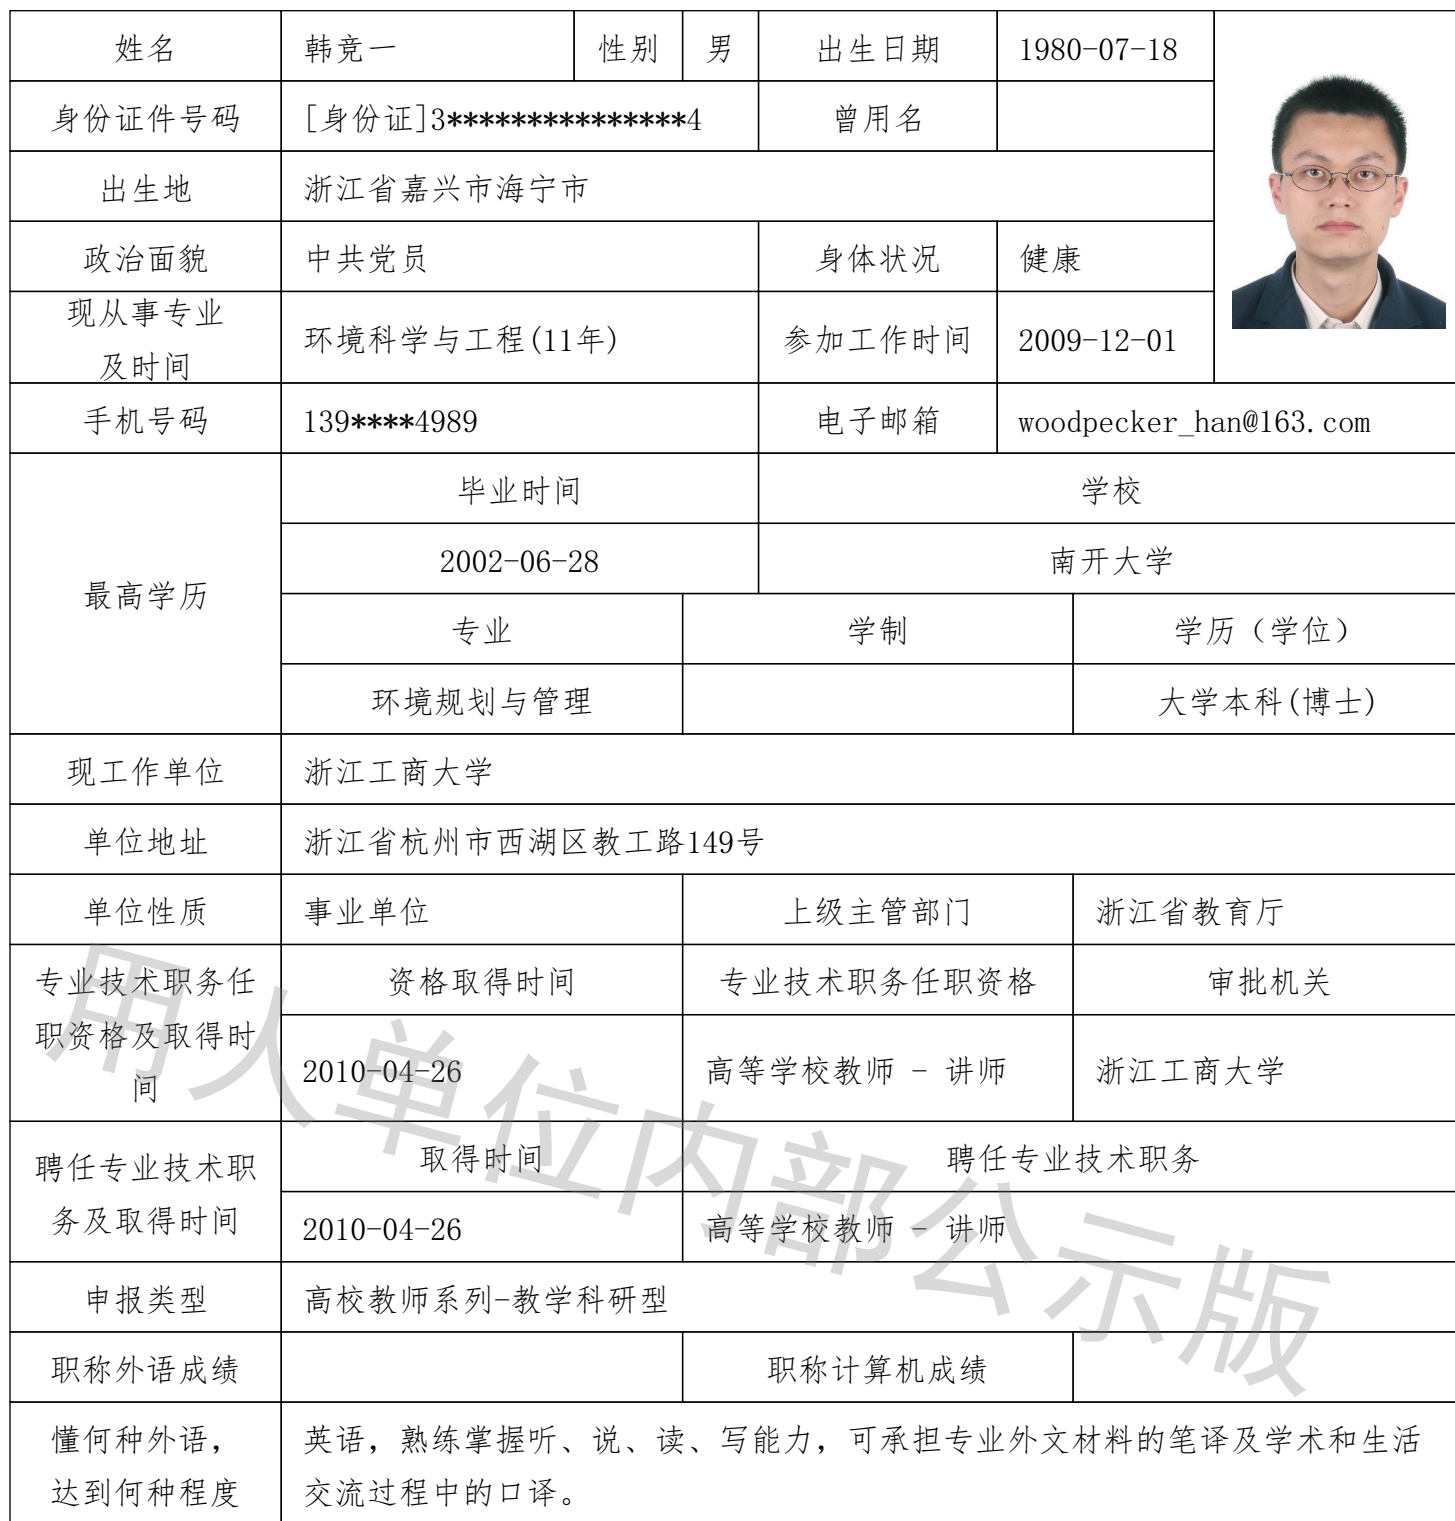 姓名 韩竞一 性别 男 出生日期 1980-07-18
身份证件号码 [身份证]3***************4 曾用名
出生地 浙江省嘉兴市海宁市
政治面貌 中共党员 身体状况 健康
现从事专业
及时间 环境科学与工程(11年) 参加工作时间 2009-12-01
手机号码 139****4989 电子邮箱 woodpecker_han@163.com
最高学历
毕业时间 学校
2002-06-28 南开大学
专业 学制 学历（学位）
环境规划与管理 大学本科(博士)
现工作单位 浙江工商大学
单位地址 浙江省杭州市西湖区教工路149号
单位性质 事业单位 上级主管部门 浙江省教育厅
专业技术职务任
职资格及取得时
间
资格取得时间 专业技术职务任职资格 审批机关
2010-04-26 高等学校教师 - 讲师 浙江工商大学
聘任专业技术职
务及取得时间
取得时间 聘任专业技术职务
2010-04-26 高等学校教师 - 讲师
申报类型 高校教师系列-教学科研型
职称外语成绩 职称计算机成绩
懂何种外语，
达到何种程度
英语，熟练掌握听、说、读、写能力，可承担专业外文材料的笔译及学术和生活
交流过程中的口译。
用人单位内部公示版